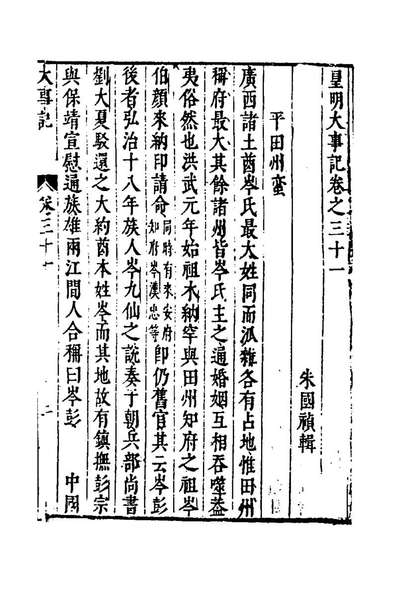 皇明大事記卷之三十一
朱國禎輯
平田州蠻
廣西諸土酋岑氏最大姓同而派雜各有占地惟田州
稱府最大其餘諸州皆岑氏主之遍婚姻互相吞噬葢
夷俗然也洪武元年始祖木納罕與田州知府之祖岑
伯顏來納印請命同時有來安府知府岑漢忠等即仍舊官其云岑彭
後者弘治十八年族人岑九仙之說奏于朝兵部尚書
劉大夏駁還之大約酋本姓岑而其地故有鎮撫彭宗
與保靖宣慰通族雄兩江間人合稱曰岑彭　中國
大事記
卷三十一